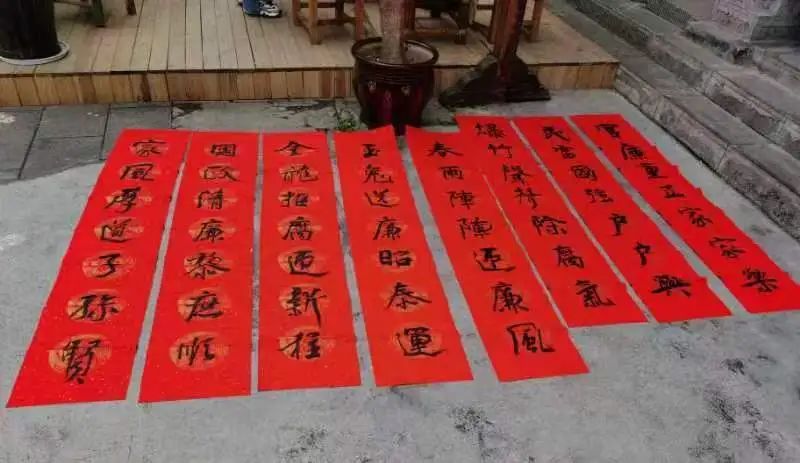 官廉吏正家家樂
民富國強戶戶興
爆竹聲聲除腐氣
春雨陣陣迎廉風
玉兔送廉昭泰運
金龍拒腐迎新
國政清廉黎庶順
家風厚道子孫賢